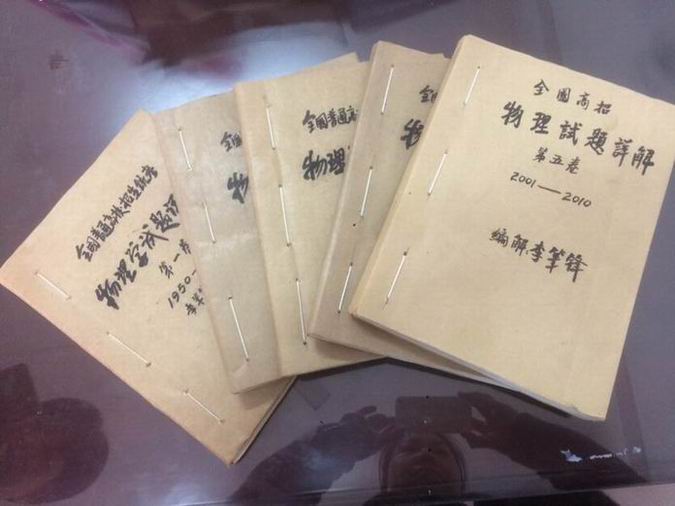 全國普通高校招生統考
物理学試題詳
第一卷
1950—
全國
物
全國普通高
物理
全國
物
全國高招
物理試題詳解
第五卷
2001—2010
編解 李筆鋒